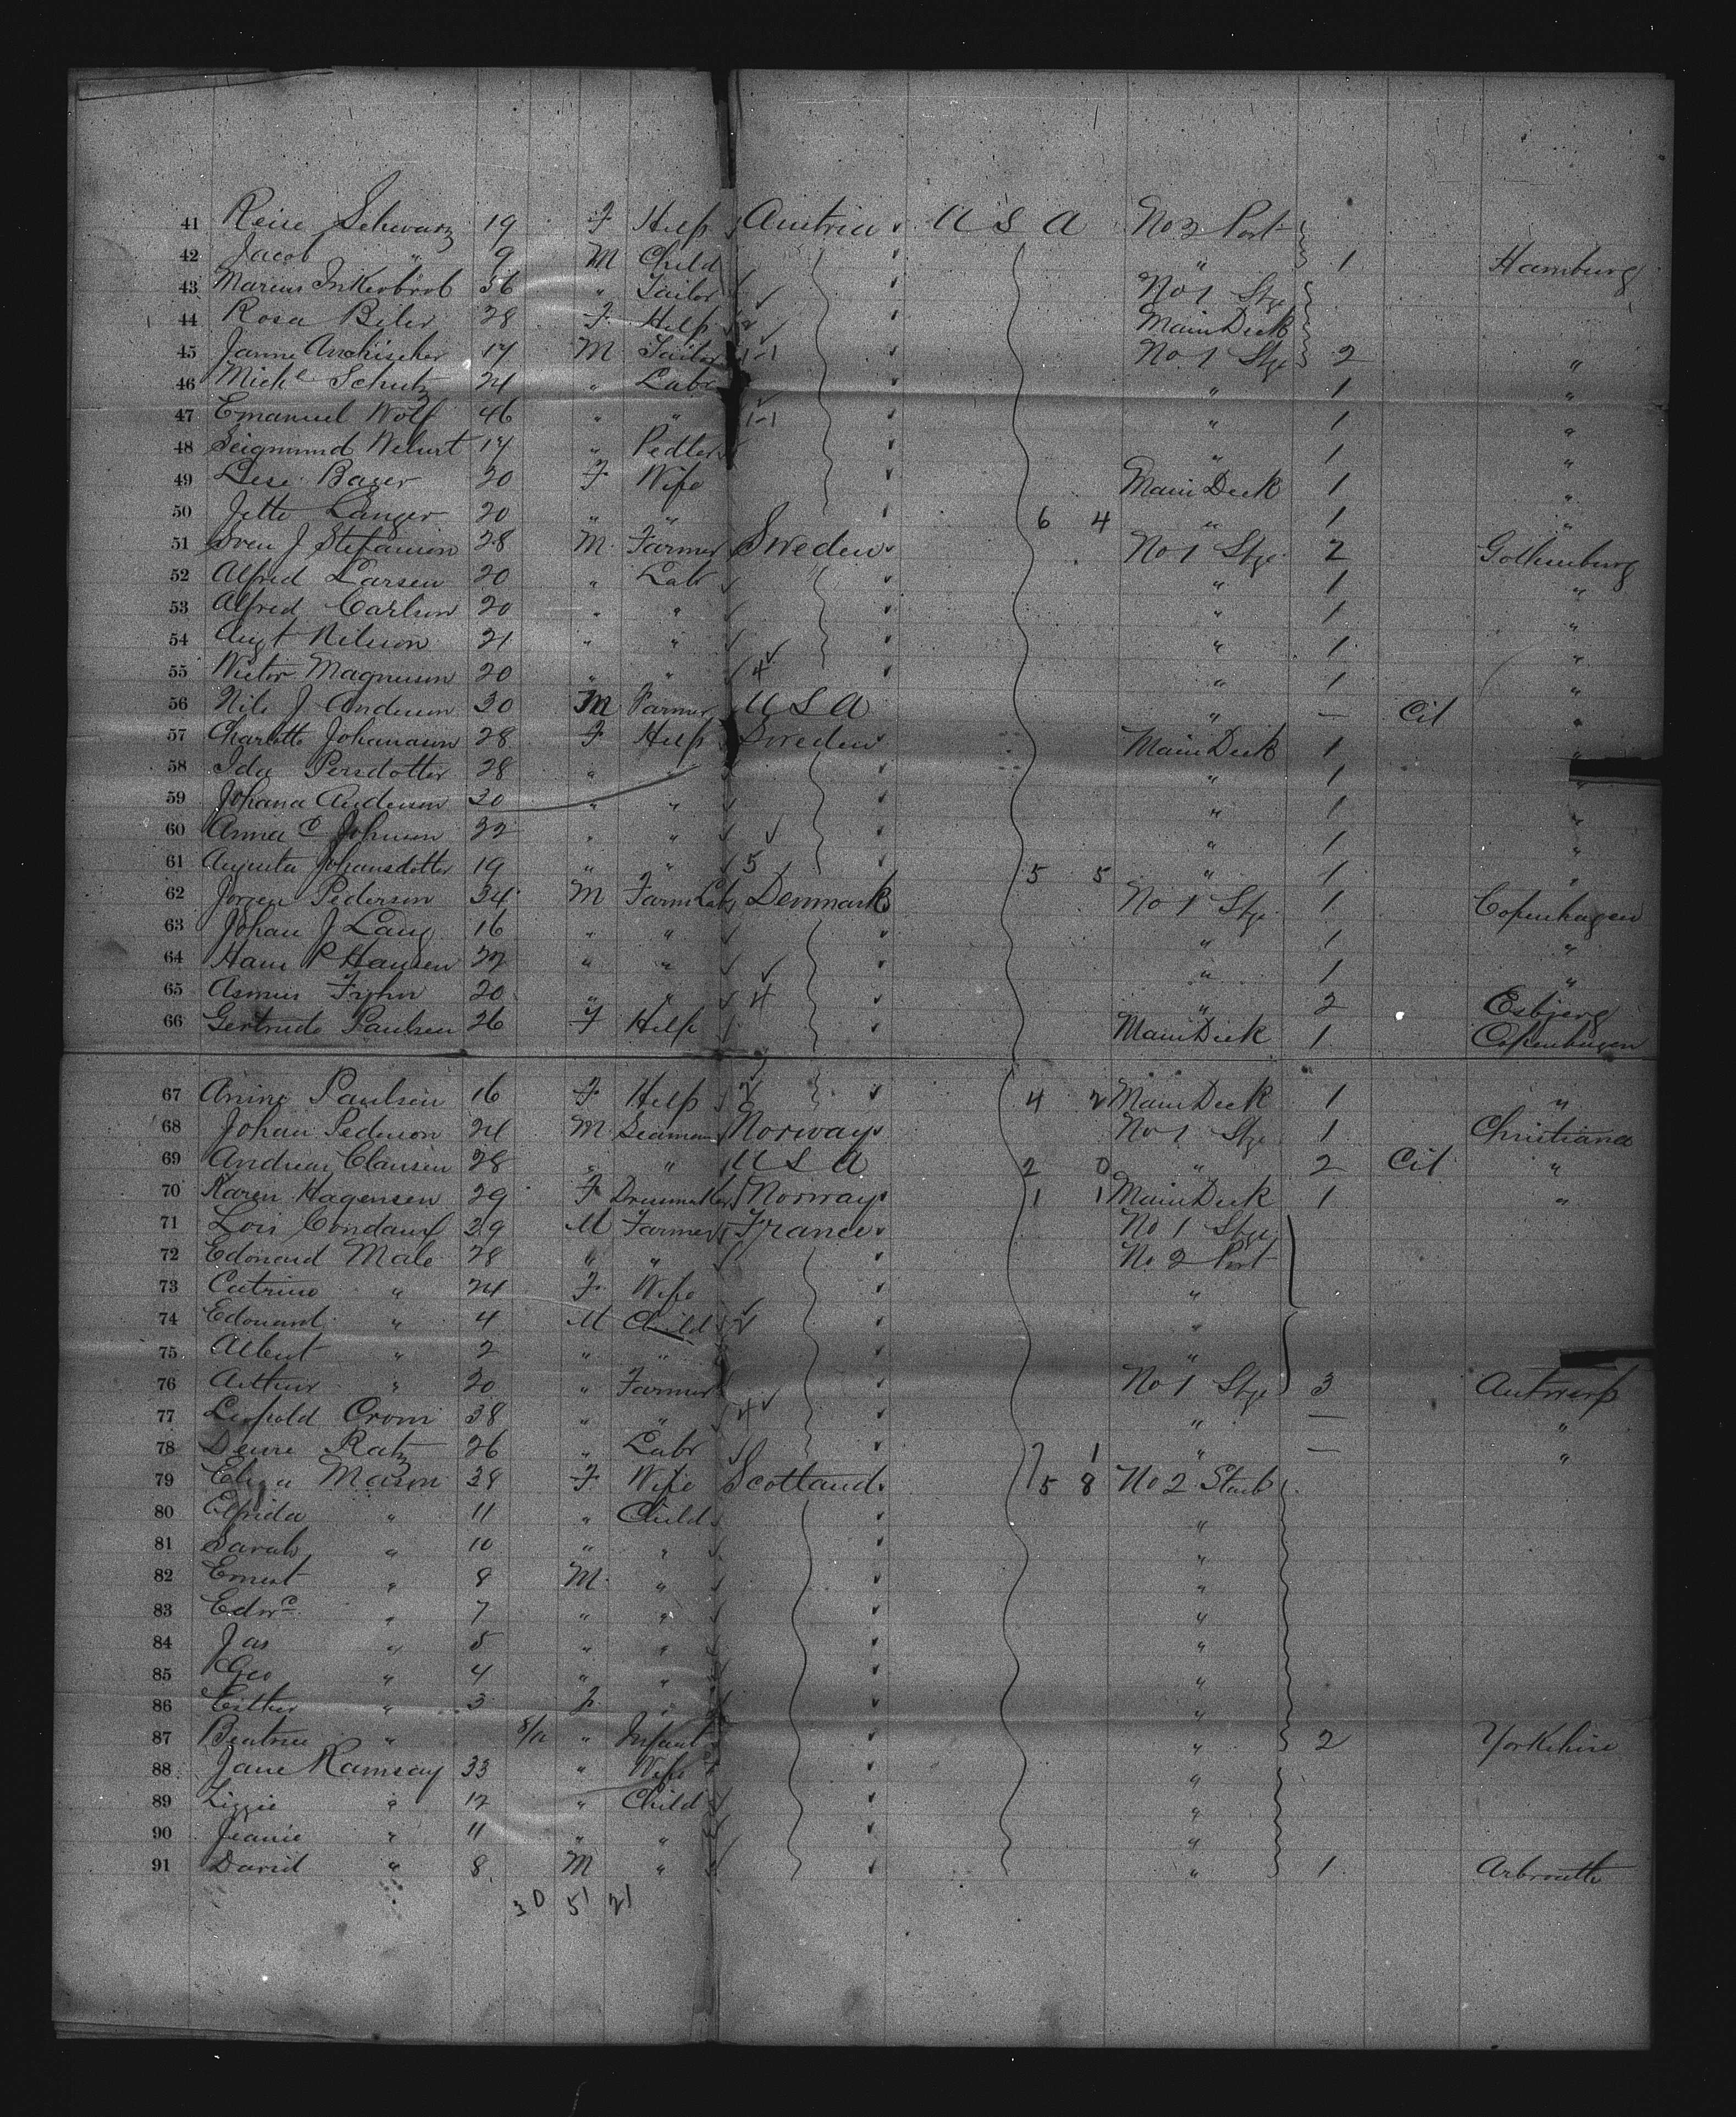 41 Reise Schwarz 19 F Help Austria U S A No 2 Port
42 Jacob " 9 M Child " 1 Hamburg
43 Marcus 36 " Tailor No 1 Stge
44 Rosa Beler 28 F Help Main Deck
45 17 M Tailor 1-1 No 1 Stge 2 "
46 Schutz 24 " Labr " 1 "
47 Emanuel Wolf 46 " " 1-1 " 1 "
48 17 " Pedler " 1 "
49 Bager 20 F Wife Main Deck 1 "
50 Jette Langer 20 " " 6 4 " 1 "
51 Sven J 28 M Farmer Sweden No 1 Stge 2 Gothenburg
52 Alfred Larsen 20 " Labr " 1 "
53 Alfred Carlson 20 " " " 1 "
54 Augt Nilsson 21 " " " 1 "
55 Magnuson 20 " " 4 " 1 "
56 Nils J Anderson 30 M Farmer U S A " — Cit "
57 Charlotte 28 F Help Sweden Main Deck 1 "
58 Ida Persdotter 28 " " " 1 "
59 Johana Anderson 30 " " " 1 "
60 Anna C Johnson 22 " " " 1 "
61 Augusta Johansdotter 19 " " 5 5 5 " 1 "
62 Jorgen Pederson 34 M Farm Labr Denmark No 1 Stge 1 Copenhagen
63 Johan J Lang 16 " " " 1 "
64 Hans P Hansen 22 " " " 1 "
65 Asmus 20 " " 4 " 2 Esbjerg
66 Gertrude Paulsen 26 F Help Main Deck 1 Copenhagen
67 Anine Paulsen 16 F Help 2 4 2 Main Deck 1 "
68 Johan Pederson 24 M Seaman Norway No 1 Stge 1 Christiana
69 Andreas Clausen 28 " " U S A 2 0 " 2 Cit "
70 Karen Hagensen 29 F Dressmaker Norway 1 1 Main Deck 1 "
71 Lois 39 M Farmer France No 1 Stge
72 Edouard Male 28 " " No 2 Port
73 Catrine " 24 F Wife "
74 Edouard " 4 M Child 2 "
75 Albert " 2 " " "
76 Arthur " 20 " Farmer No 1 Stge 3 Antwerp
77 Leopold 38 " " 4 " — "
78 Katz 26 " Labr 7 1 " — "
79 Eliza Mason 38 F Wife Scotland 5 8 No 2 Starb
80 Elfrida " 11 " Child "
81 Sarah " 10 " " "
82 Ernest " 8 M " "
83 Edwd " 7 " " "
84 Jas " 5 " " "
85 Geo " 4 " " "
86 Esther " 3 F " "
87 Beatrice " " Infant " 2 Yorkshire
88 Jane Ramsay 33 " Wife "
89 Lizzie " 12 " Child "
90 Jeanie " 11 " " "
91 David " 8 M " " 1 Arbroath
30 51 21